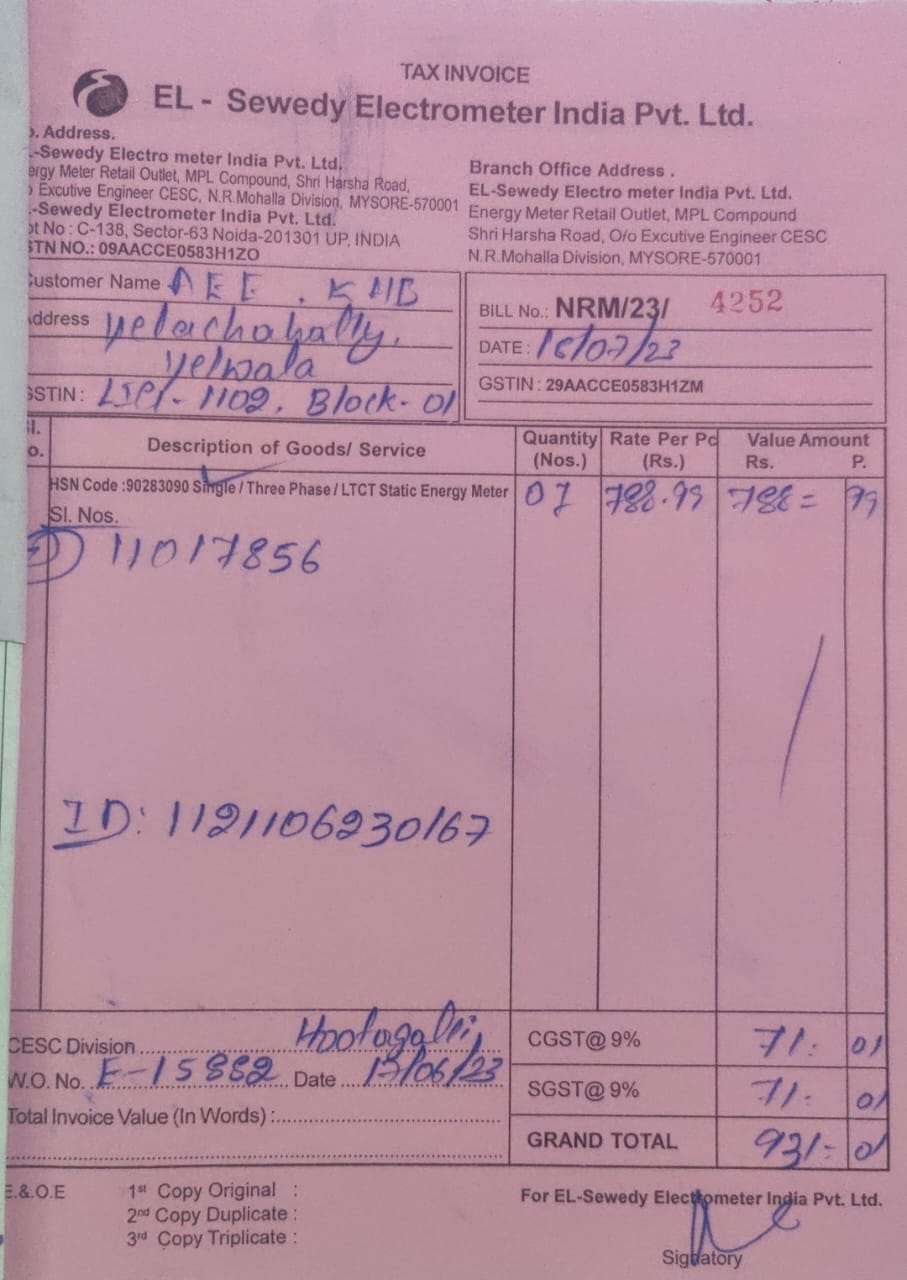 TAX INVOICE
EL - Sewedy Electrometer India Pvt. Ltd.
. Address.
-Sewedy Electro meter India Pvt. Ltd.
ergy Meter Retail Outlet, MPL Compound, Shri Harsha Road,
Excutive Engineer CESC, N.R.Mohalla Division, MYSORE-570001
-Sewedy Electrometer India Pvt. Ltd.
ot No : C-138, Sector-63 Noida-201301 UP, INDIA
STN NO.: 09AACCE0583H1ZO
Branch Office Address .
EL-Sewedy Electro meter India Pvt. Ltd.
Energy Meter Retail Outlet, MPL Compound
Shri Harsha Road, O/o Excutive Engineer CESC
N.R.Mohalla Division, MYSORE-570001
Customer Name AEE . KHB
Address Yelachahally,
Yelwala
GSTIN : 1109, Block-01
BILL No.: NRM/23/ 4252
DATE : /07/23
GSTIN : 29AACCE0583H1ZM
Sl. No. Description of Goods/ Service Quantity (Nos.) Rate Per Pc (Rs.) Value Amount Rs. P.
HSN Code :90283090 Single / Three Phase / LTCT Static Energy Meter 01 788.99 788= 99
Sl. Nos.
11017856
ID: 1121106230167
CESC Division Hootagalli,
W.O. No. E-15882 Date 13/06/23
Total Invoice Value (In Words) :
CGST@ 9% 71: 01
SGST@ 9% 71: 01
GRAND TOTAL 931= 01
E.&.O.E
1st Copy Original :
2nd Copy Duplicate :
3rd Copy Triplicate :
For EL-Sewedy Electrometer India Pvt. Ltd.
Signatory